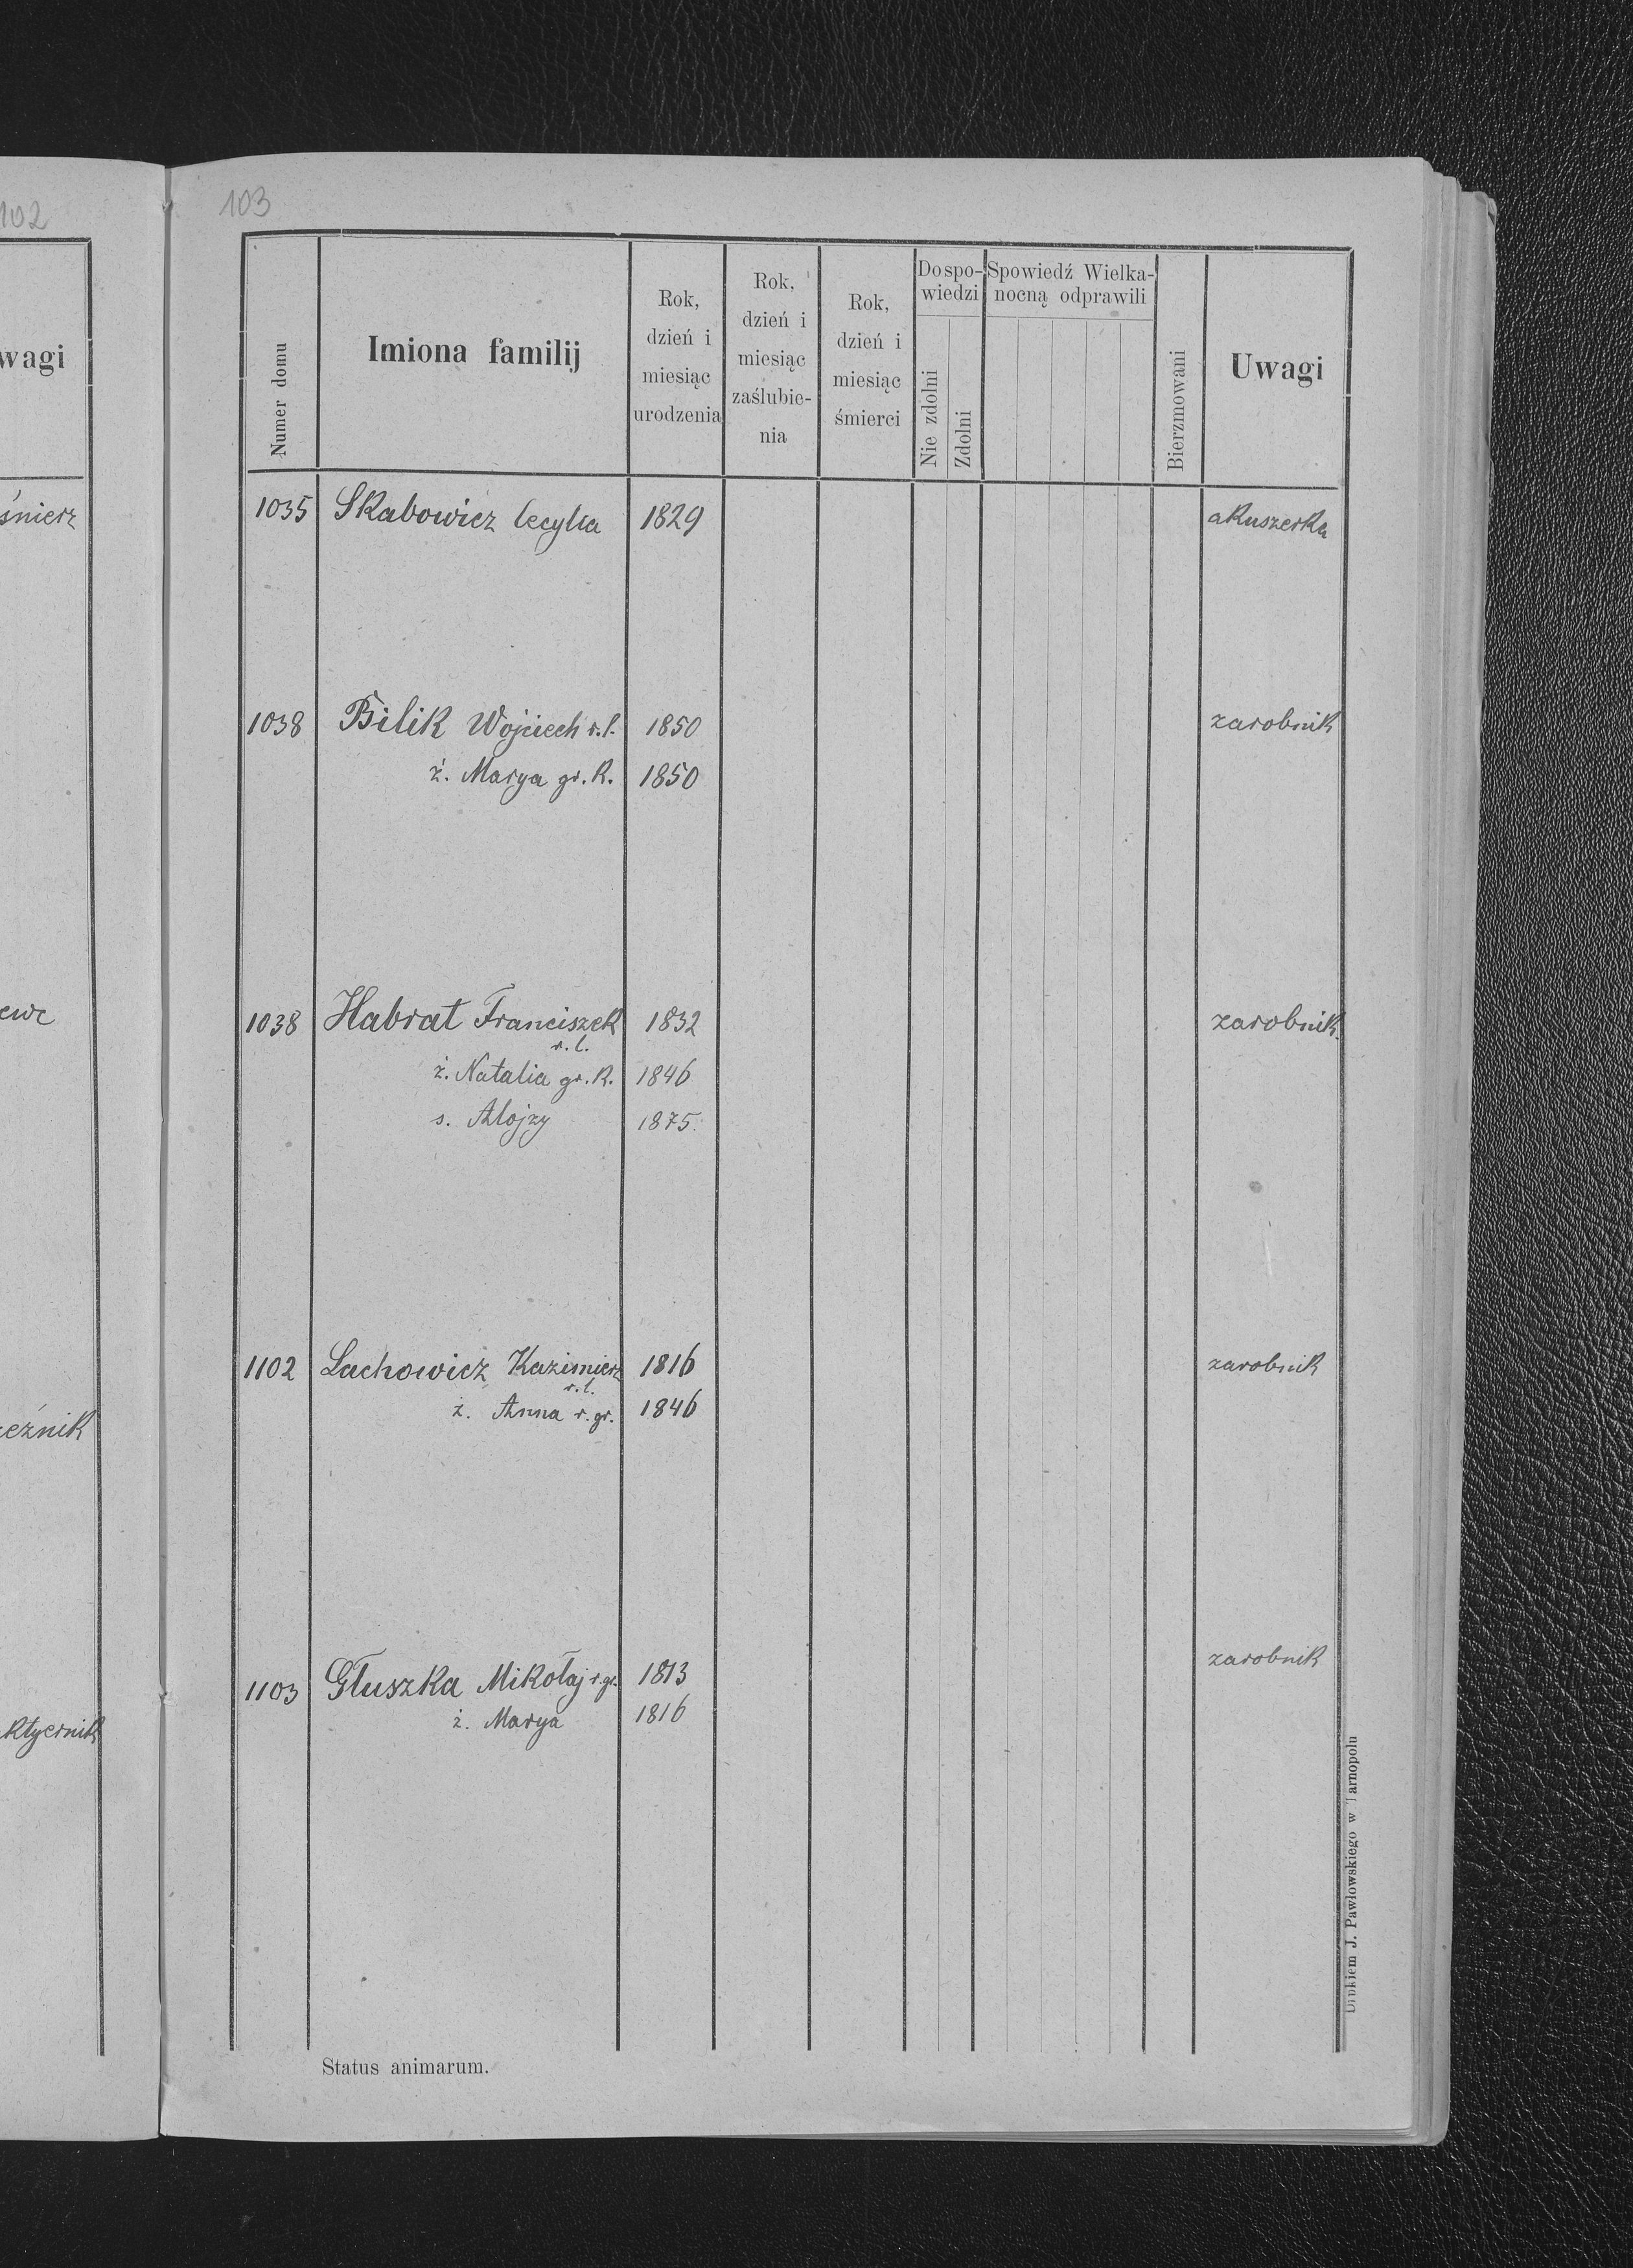 102
wagi
śnierz
ewc
eźnik
ktyernik
103
Numer domu
Imiona familij
Rok,
dzień i
miesiąc
urodzenia
Rok,
dzień i
miesiąc
zaślubie-
nia
Rok,
dzień i
miesiąc
śmierci
Do spo-
wiedzi
Nie zdolni
Zdolni
Spowiedź Wielka-
nocną odprawili
Bierzmowani
Uwagi
1035 Skabowicz Cecylia 1829 akuszerka
1038 Bilik Wojciech r.l. 1850 zarobnik
ż. Marya gr. k. 1850
1038 Habrat Franciszek 1832 zarobnik
r. l.
ż. Natalia gr. k. 1846
s. Alojzy 1875.
1102 Lachowicz Kazimierz 1816 zarobnik
r. l.
ż. Anna r. gr. 1846
1103 Głuszka Mikołaj r. gr. 1813 zarobnik
ż. Marya 1816
Status animarum.
Drukiem J. Pawłowskiego w Tarnopolu